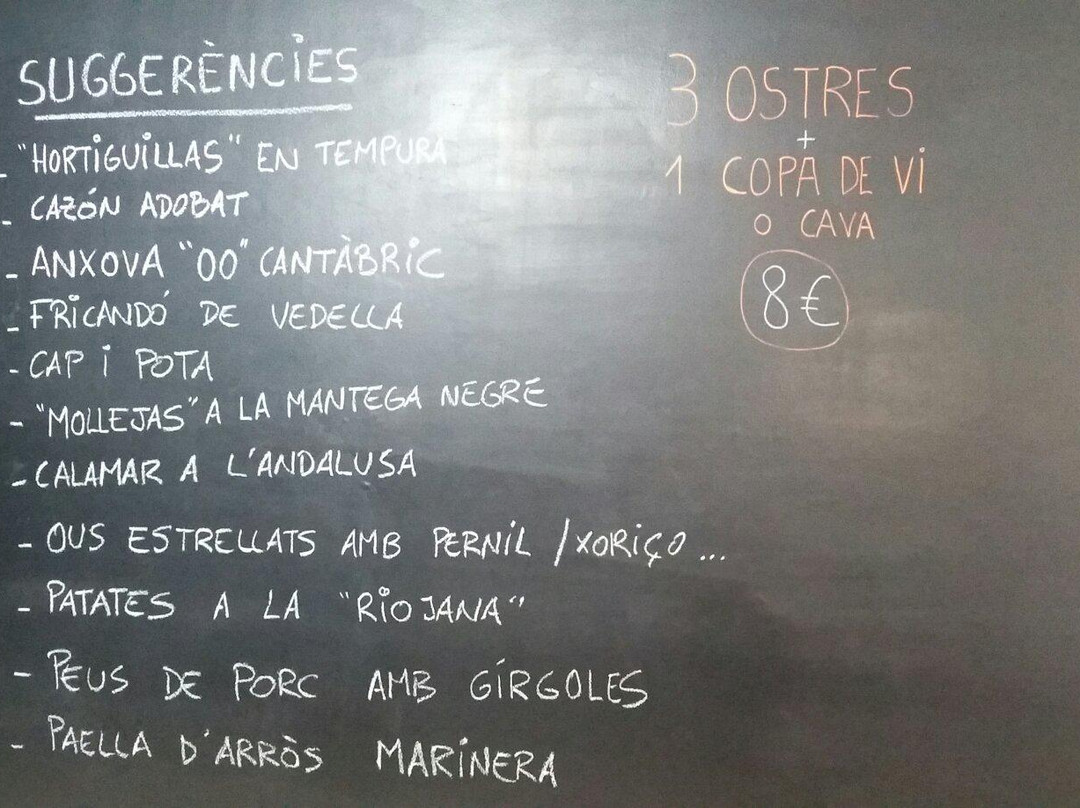 SUGGERÈNCIES
- "HORTIGUILLAS" EN TEMPURA
- CAZÓN ADOBAT
- ANXOVA "OO" CANTÀBRIC
- FRICANDÓ DE VEDELLA
- CAP I POTA
- "MOLLEJAS" A LA MANTEGA NEGRE
- CALAMAR A L'ANDALUSA
- OUS ESTRELLATS AMB PERNIL / XORIÇO ...
- PATATES A LA "RIOJANA"
- PEUS DE PORC AMB GÍRGOLES
- PAELLA D'ARRÒS MARINERA
3 OSTRES
+
1 COPA DE VI
O CAVA
8€